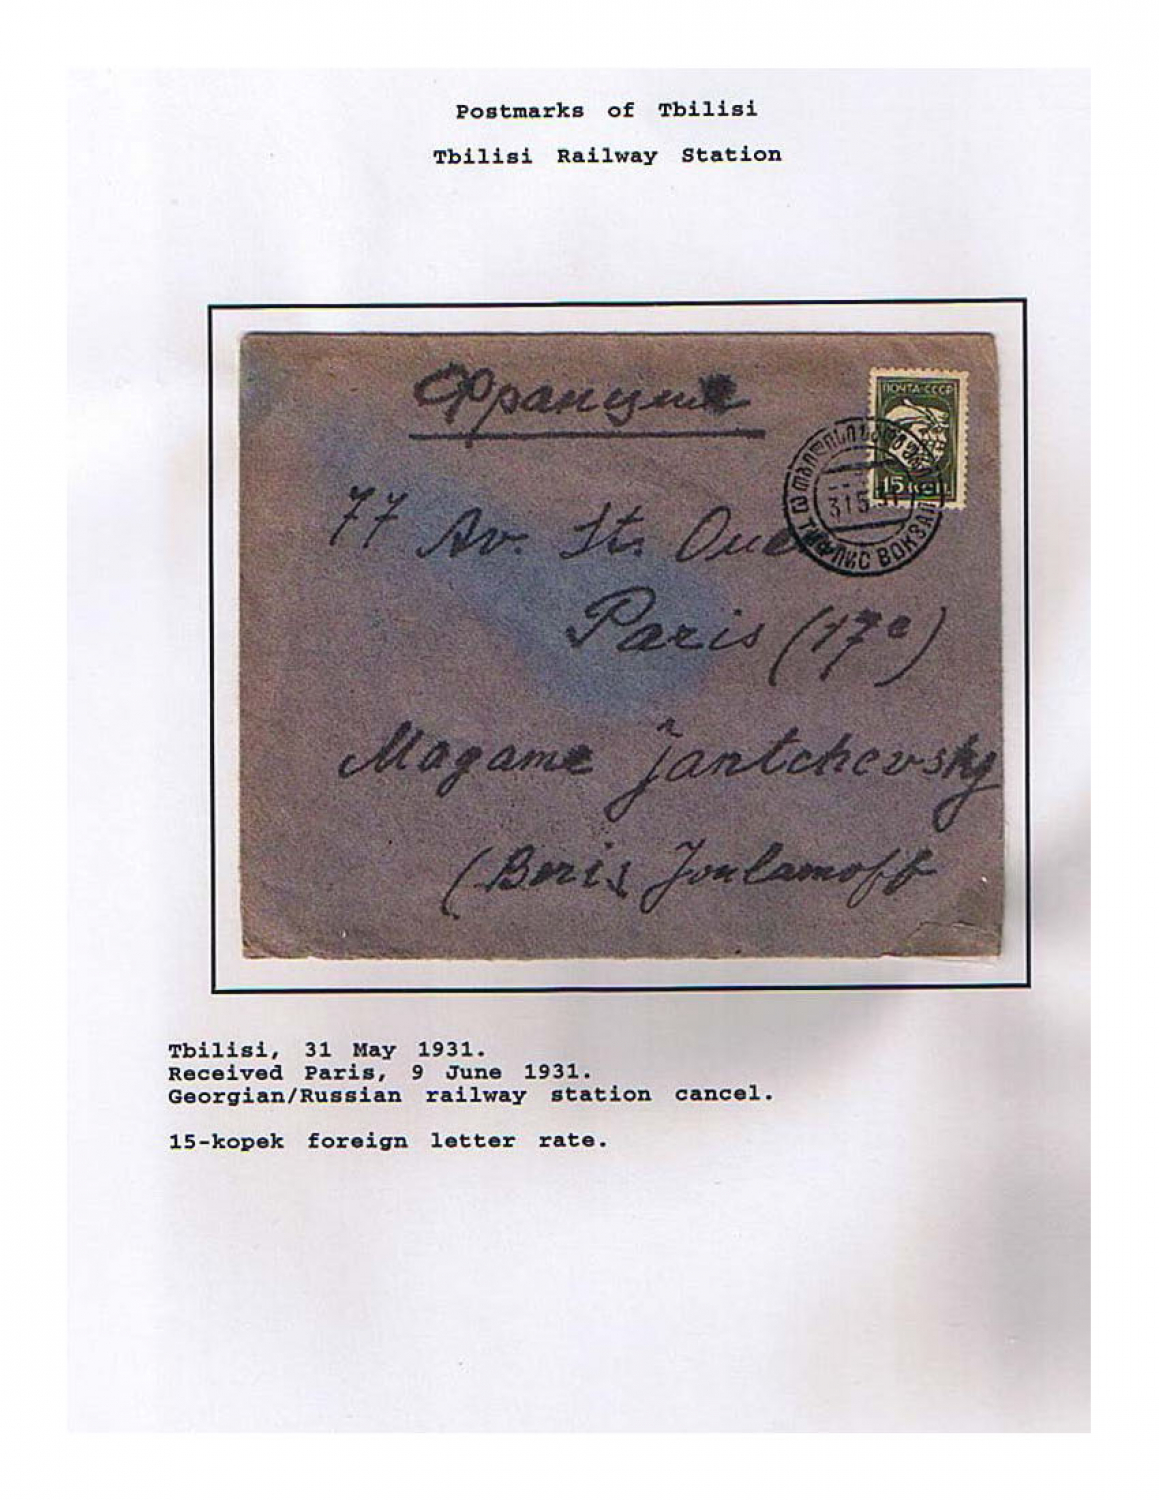 Postmarks of Tbilisi
Tbilisi Railway Station
Франция
ПОЧТА-СССР
15 КОП
31 5 31
ТИФЛИС ВОКЗАЛ
77 Av. St. Oue
Paris (17e)
Magame Jantchevsky
(Boris Joulamoff
Tbilisi, 31 May 1931.
Received Paris, 9 June 1931.
Georgian/Russian railway station cancel.
15-kopek foreign letter rate.